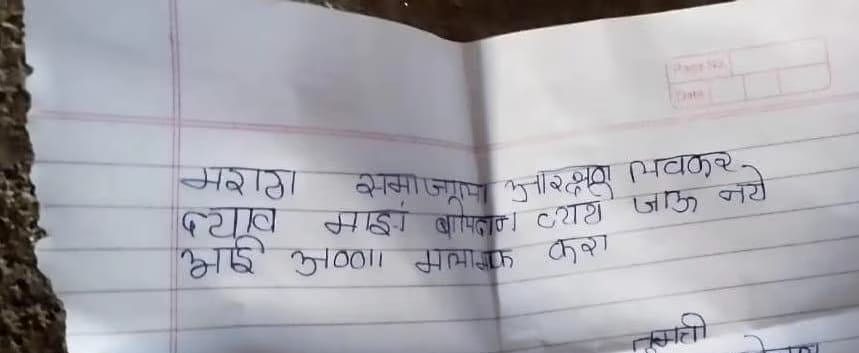 Page No.
Date
मराठा समाजाला आरक्षण लवकर
द्याव माझं बलिदान व्यर्थ जाऊ नये
आई अण्णा मला माफ करा
तुमची